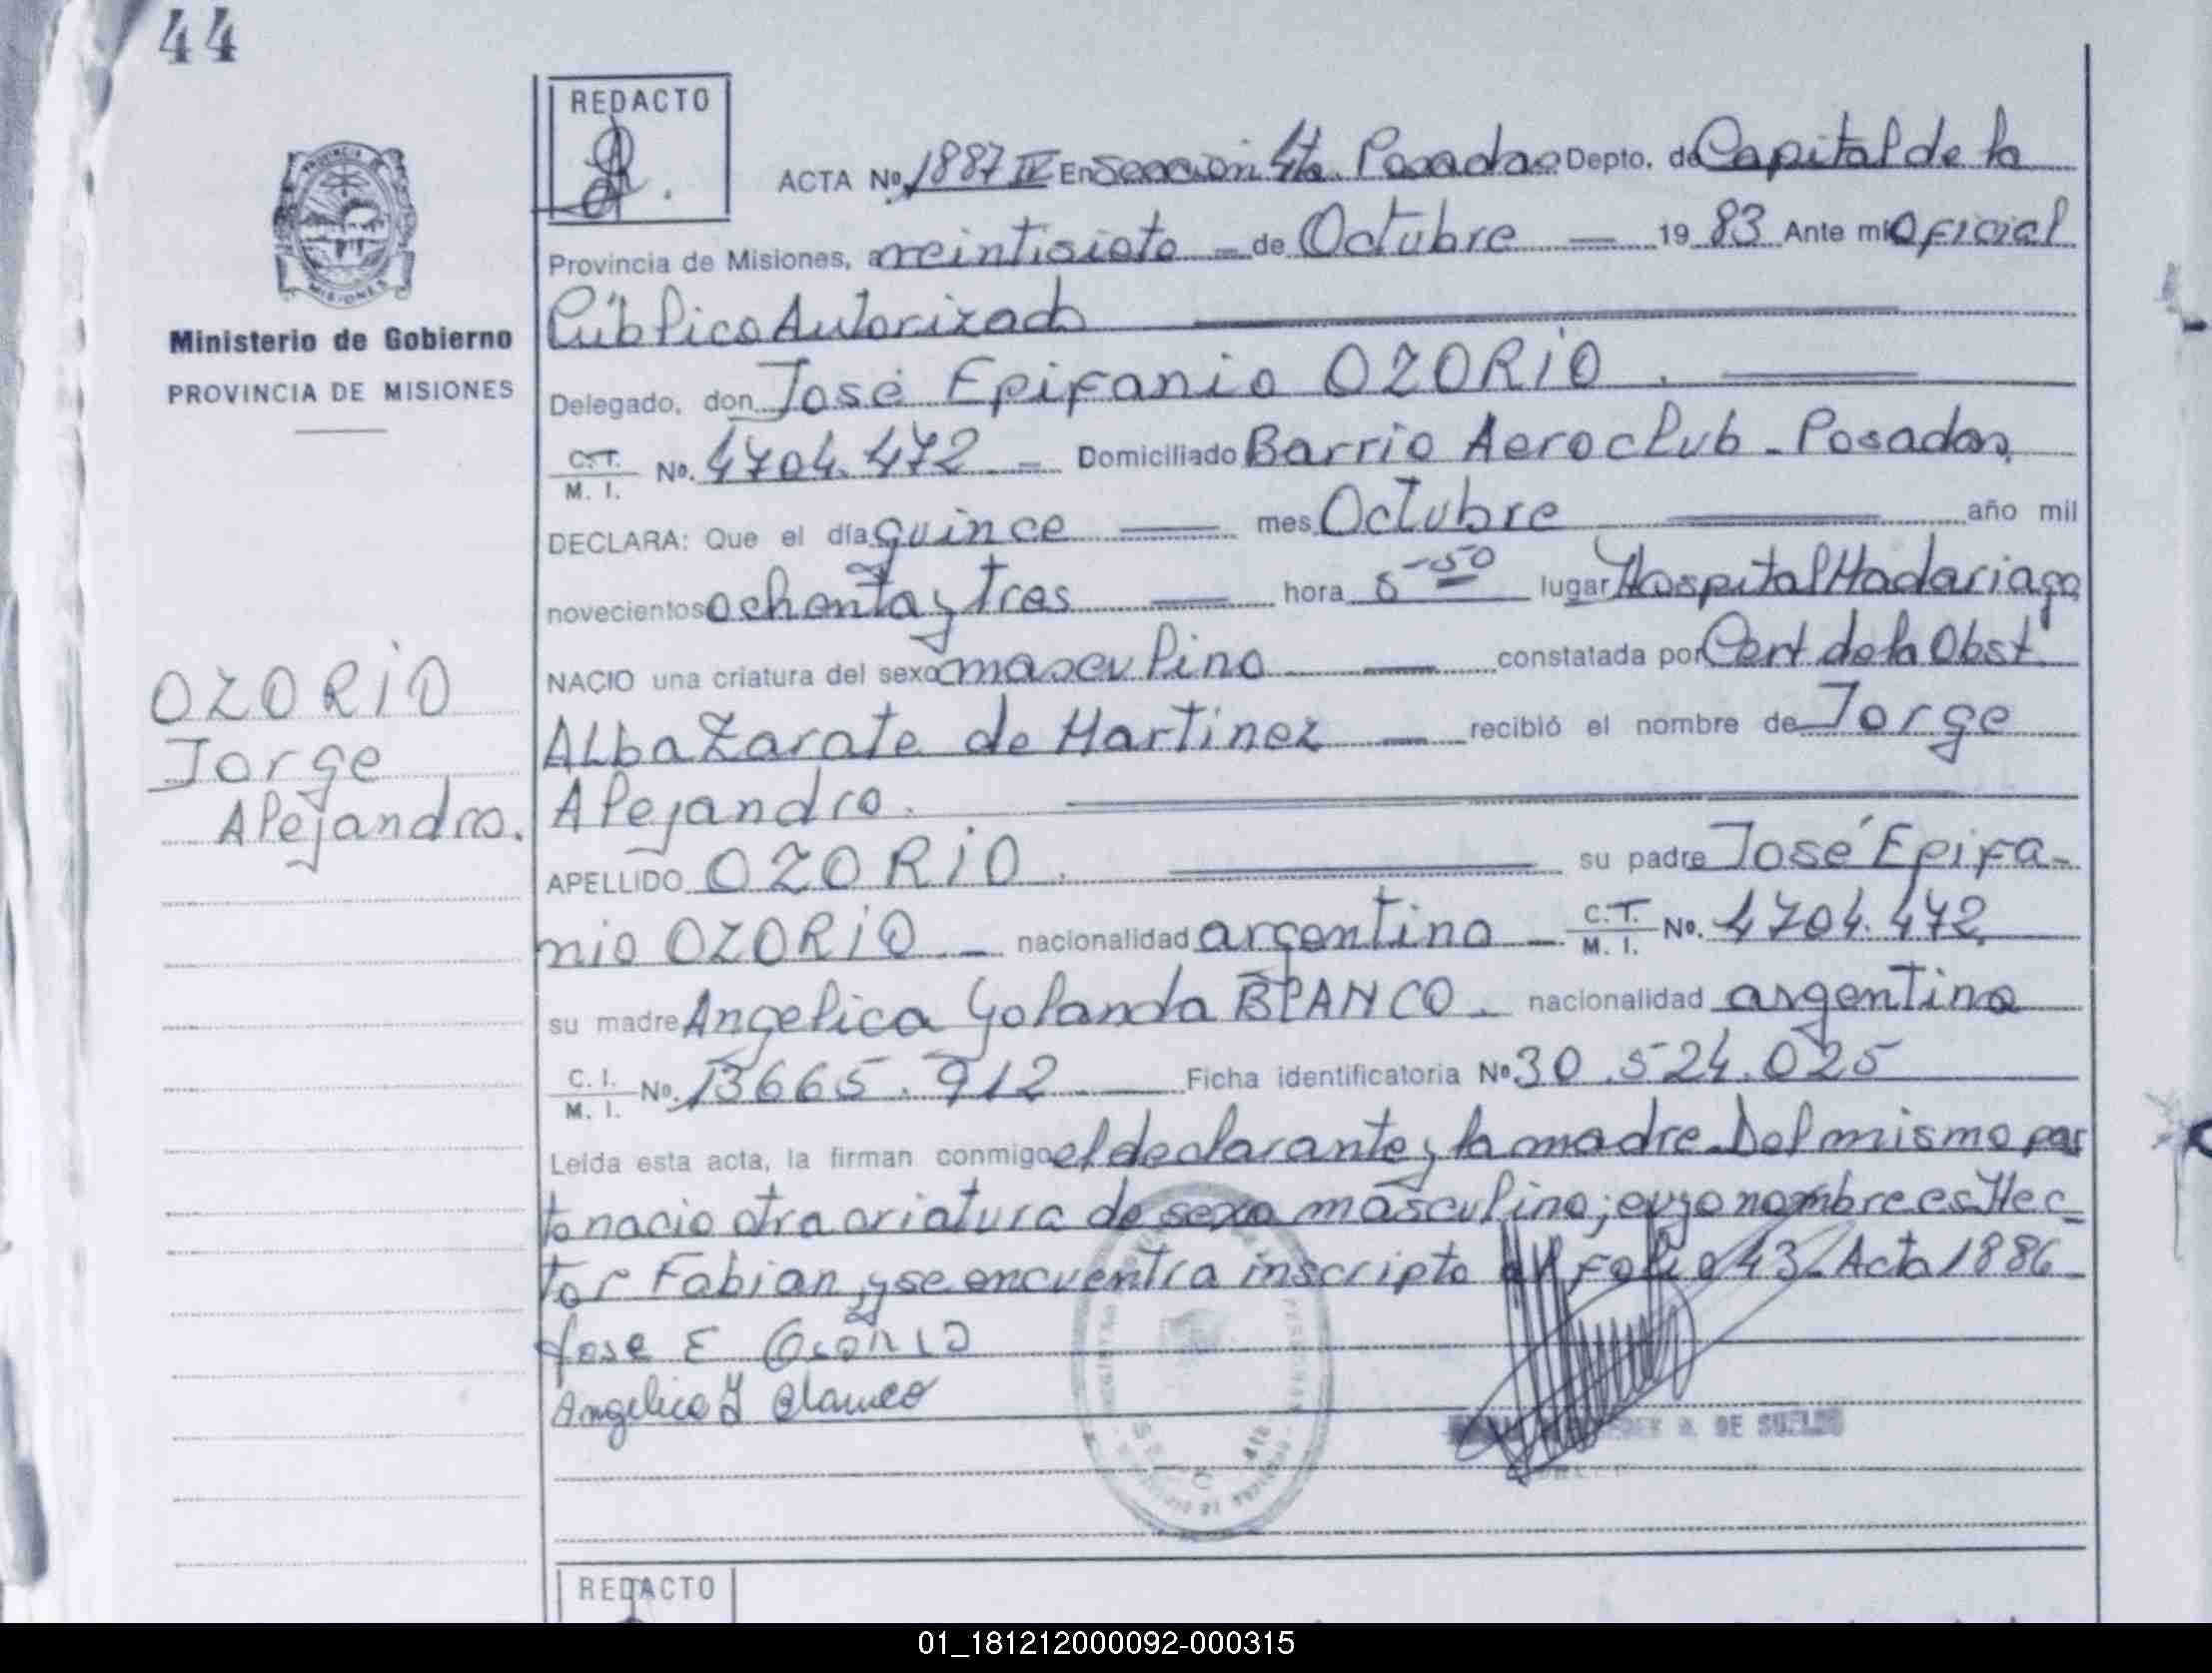 44
REDACTO
ACTA Nº 1887 IV En Sección 4ta. Posadas Depto. de Capital de la
Provincia de Misiones, a veintisiete - de Octubre — 19 83 Ante mi Oficial
Público Autorizado
Delegado, don José Epifanio OZORIO.
C.T. M. I. No. 4704.472 - Domiciliado Barrio Aeroclub - Posadas,
DECLARA: Que el día quince — mes Octubre — año mil
novecientos ochenta y tres — hora 5-50 lugar Hospital Madariaga
NACIO una criatura del sexo masculino — constatada por Cert de la Obst.
Alba Zarate de Martinez — recibió el nombre de Jorge
Alejandro.
APELLIDO OZORIO. su padre José Epifa-
nio OZORIO - nacionalidad argentino - C.T. M. I. No. 4704.472
su madre Angelica Yolanda BLANCO. nacionalidad argentina
C. I. M. I. No. 13665.912 — Ficha identificatoria Nº 30.524.025
Leída esta acta, la firman conmigo el declarante y la madre. Del mismo par
to nacio otra criatura de sexo masculino; cuyo nombre es Hec-
tor Fabian, y se encuentra inscripto al folio 43. Acta 1886-
Jose E Ozorio
Angelica Y Blanco
D. DE SUELDO
PROVINCIA DE
MISIONES
Ministerio de Gobierno
PROVINCIA DE MISIONES
OZORIO
Jorge
Alejandro.
REDACTO
01_181212000092-000315